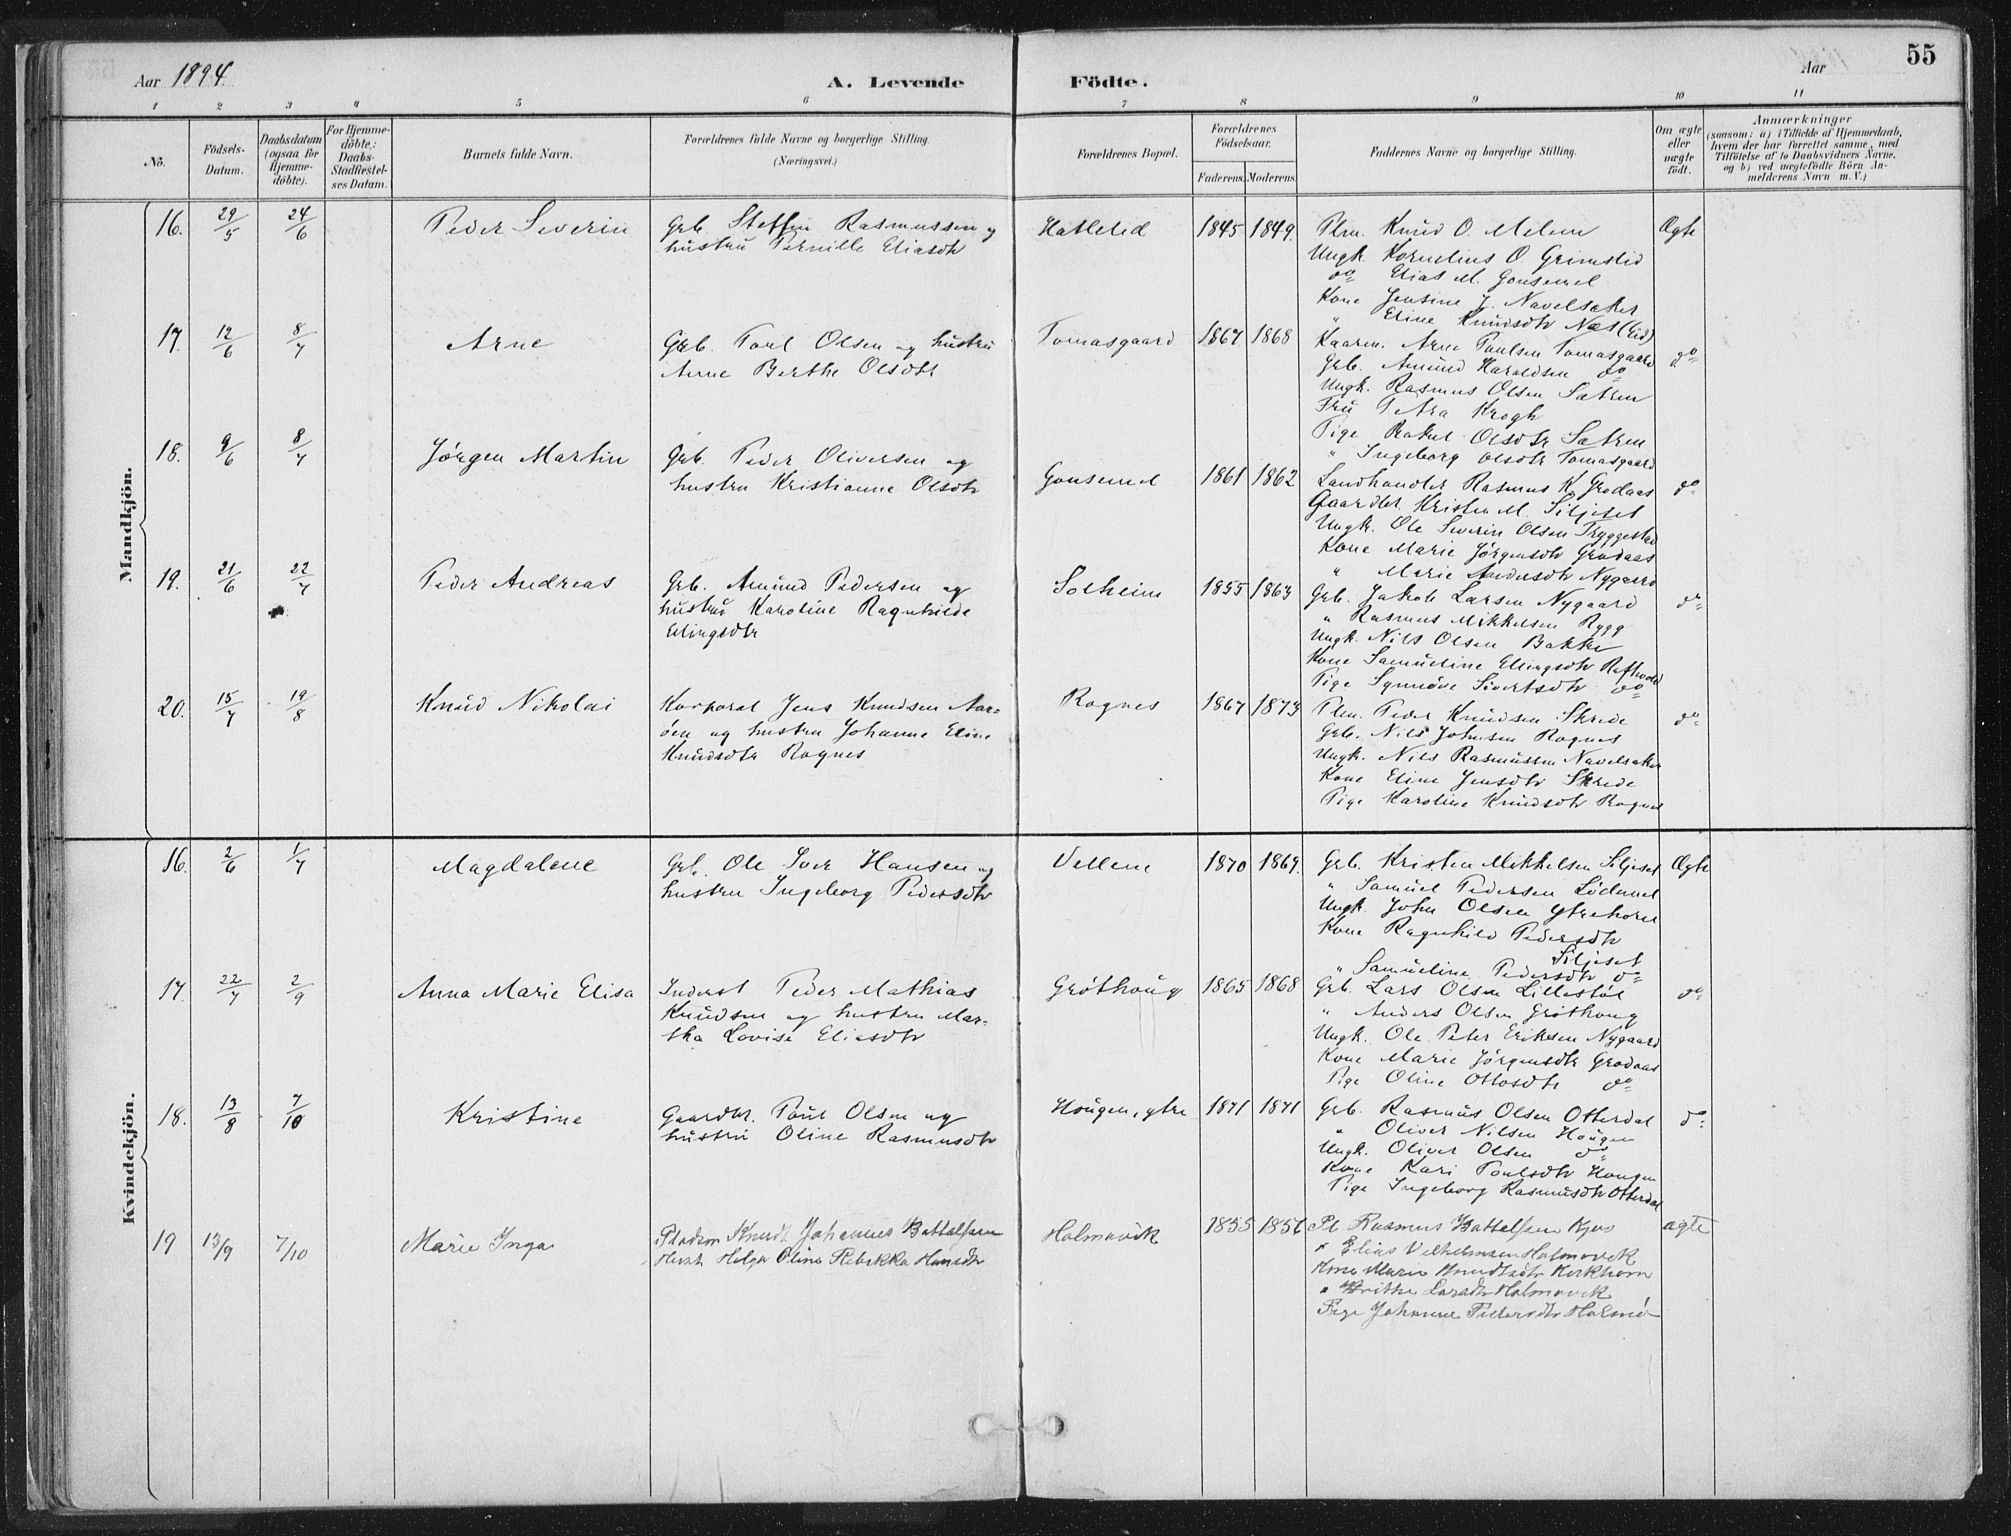 Aar 1894.
A. Levende Födte.
Aar
55
1 2 3 4 5 6 7 8 9 10 11
No.
Födsels-Datum.
Daabsdatum (ogsaa for Hjemme-döbte).
For Hjemme-döbte,: Daabs-Stadfæstel-ses Datum.
Barnets fulde Navn.
Forældrenes fulde Navne og borgerlige Stilling.
(Næringsvei.)
Forældrenes Bopæl.
Forældrenes Födselsaar.
Faderens. Moderens.
Faddernes Navne og borgerlige Stilling.
Om ægte eller uægte födt.
Anmærkninger
(saasom: a) i Tilfælde af Hjemmedaab,
hvem der har forrettet samme, med
Tilföielse af to Daabsvidners Navne,
og b) ved uægtefödte Börn An-
melderens Navn m. V.)
Mandkjön.
16. 29/5 24/6 Peder Severin
Grb. Steffen Rasmussen og
hustru Pernille Eliasdtr
Hatlelid 1845 1849.
Plm. Knud O. Melem
Ungk. Kornelius O. Grimstid
do Elias M. Gausemel
Kone Jensine J. Navelsaker
" Eline Knudsdtr Næs (Eid)
Ægte
17. 12/6 8/7 Arne
Grb. Paul Olsen og hustru
Anne Berthe Olsdtr
Tomasgaard 1867 1868
Kaarm. Arne Paulsen Tomasgaard
Grb. Amund Haraldsen do
Ungk. Rasmus Olsen Sætren
Fru Petra Krogh
Pige Rakel Olsdtr Sætren
" Ingeborg Olsdtr Tomasgaard
do
18. 9/6 8/7 Jørgen Martin
Grb. Peder Oliversen og
hustru Kristianne Olsdtr
Gausemel 1861 1862
Landhandler Rasmus K. Grodaas
Gaardbr. Kristen M. Siljeset
Ungk. Ole Severin Olsen Tryggestad
Kone Marie Jørgensdtr Grodaas
" Marie Andersdtr Nygaard
do
19. 21/6 22/7 Peder Andreas
Grb. Amund Pedersen og
hustru Karoline Ragnhilde
Elingsdtr
Solheim 1855 1863
Grb. Jakob Larsen Nygaard
" Rasmus Mikkelsen Rygg
Ungk. Nils Olsen Bakke
Kone Samueline Elingsdtr Raftvold
Pige Synnøve Sivertsdtr do
do
20. 15/7 19/8 Knud Nikolai
Korporal Jens Knudsen Aar-
øen og hustru Johanne Eline
Knudsdtr Rognes
Rognes 1867 1873
Plm. Peder Knudsen Skrede
Grb. Nils Johnsen Rognes
Ungk. Nils Rasmussen Navelsaker
Kone Eline Jensdtr Skrede
Pige Karoline Knudsdtr Rognes
do
Kvindekjön.
16. 2/6 1/7 Magdalene
Grb. Ole Iver Hansen og
hustru Ingeborg Pedersdtr
Vellene 1870 1869.
Grb. Kristen Mikkelsen Siljeset
" Samuel Pedersen Lødemel
Ungk. John Olsen Ytrehorn
Kone Ragnhild Pedersdtr
Siljeset
" Samueline Pedersdtr do
Ægte
17. 22/7 2/9 Anna Marie Elisa
Inderst Peder Mathias
Knudsen og hustru Mar-
tha Lovise Eliasdtr
Grøthoug 1865 1868
Grb. Lars Olsen Lillestøl
" Anders Olsen Grøthoug
Ungk. Ole Peter Eriksen Nygaard
Kone Marie Jørgensdtr Grodaas
Pige Oline Ottosdtr do
do
18. 13/8 7/10 Kristine
Gaardbr. Paul Olsen og
hustru Oline Rasmusdtr
Hougen, ytre 1871 1871
Grb. Rasmus Olsen Otterdal
" Oliver Nilsen Hougen
Ungk. Oliver Olsen do
Kone Kari Paulsdtr Hougen
Pige Ingeborg Rasmusdtr Otterdal
do
19 13/9 7/10 Marie Inga
Pladsm Knudt Johannes Battalfsen
Hust Helga Oline Rebekka Hansdtr
Holmøvik 1855 1856
Pl. Rasmus Battalfsen Kjøs
" Elias Vilhelmsen Holmøvik
Kone Marie Knudtsdtr Kirkhorn
" Brithe Larsdtr Holmøvik
Pige Johanne Pedersdtr Holmø
ægte